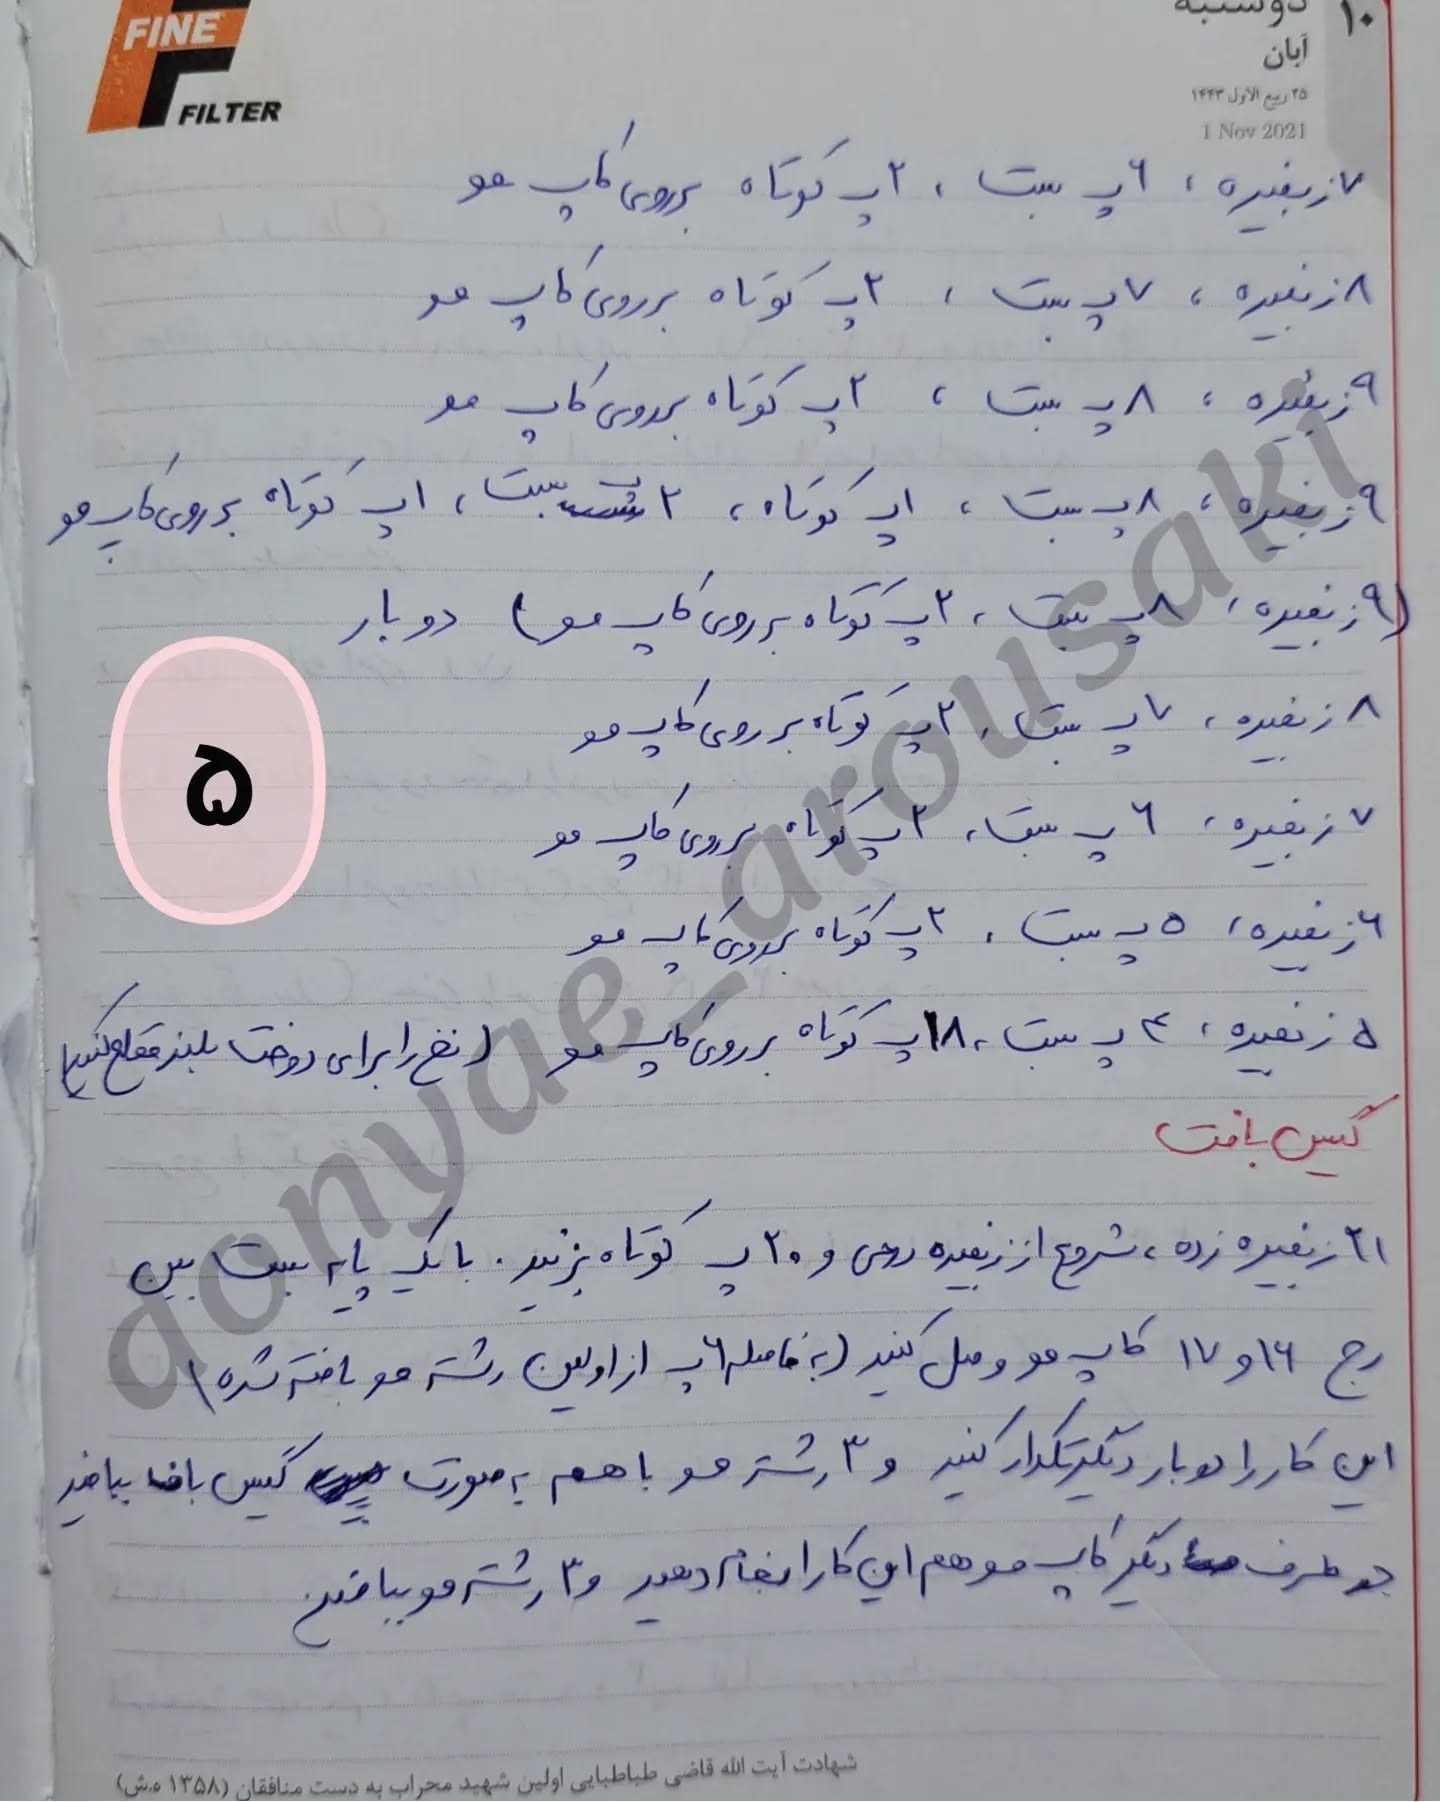 FINE
FILTER
۱۰
دوشنبه
آبان
۲۵ ربیع الاول ۱۴۴۳
1 Nov 2021
۷ زنجیره ، ۶ پ بست ، ۲ پ کوتاه برروی کاپ مو
۸ زنجیره ، ۷ پ بست ، ۲ پ کوتاه برروی کاپ مو
۹ زنجیره ، ۸ پ بست ، ۲ پ کوتاه برروی کاپ مو
۹ زنجیره ، ۸ پ بست ، ۱ پ کوتاه ، ۲ پ بست ، ۱ پ کوتاه برروی کاپ مو
(۹ زنجیره ، ۸ پ بست ، ۲ پ کوتاه برروی کاپ مو) دوبار
۸ زنجیره ، ۷ پ بست ، ۲ پ کوتاه برروی کاپ مو
۷ زنجیره ، ۶ پ بست ، ۲ پ کوتاه برروی کاپ مو
۶ زنجیره ، ۵ پ بست ، ۲ پ کوتاه برروی کاپ مو
۵ زنجیره ، ۴ پ بست ، ۱۸ پ کوتاه برروی کاپ مو (نخ را برای دوخت بلند قطع کنید)
۵
گیس بافت
۲۱ زنجیره زده ، شروع از زنجیره دومی و ۲۰ پ کوتاه بزنید . با یک پایه بست بین
رج ۱۶ و ۱۷ کاپ مو وصل کنید (به فاصله ۶ پ از اولین رشته مو بافته شده)
این کار را دوبار دیگر تکرار کنید و ۳ رشته مو با هم به صورت گیس باف ببافید
در طرف دیگر کاپ مو هم این کار انجام دهید و ۳ رشته مو ببافید
donyae_arousaki
شهادت آیت الله قاضی طباطبایی اولین شهید محراب به دست منافقان (۱۳۵۸ ه.ش)